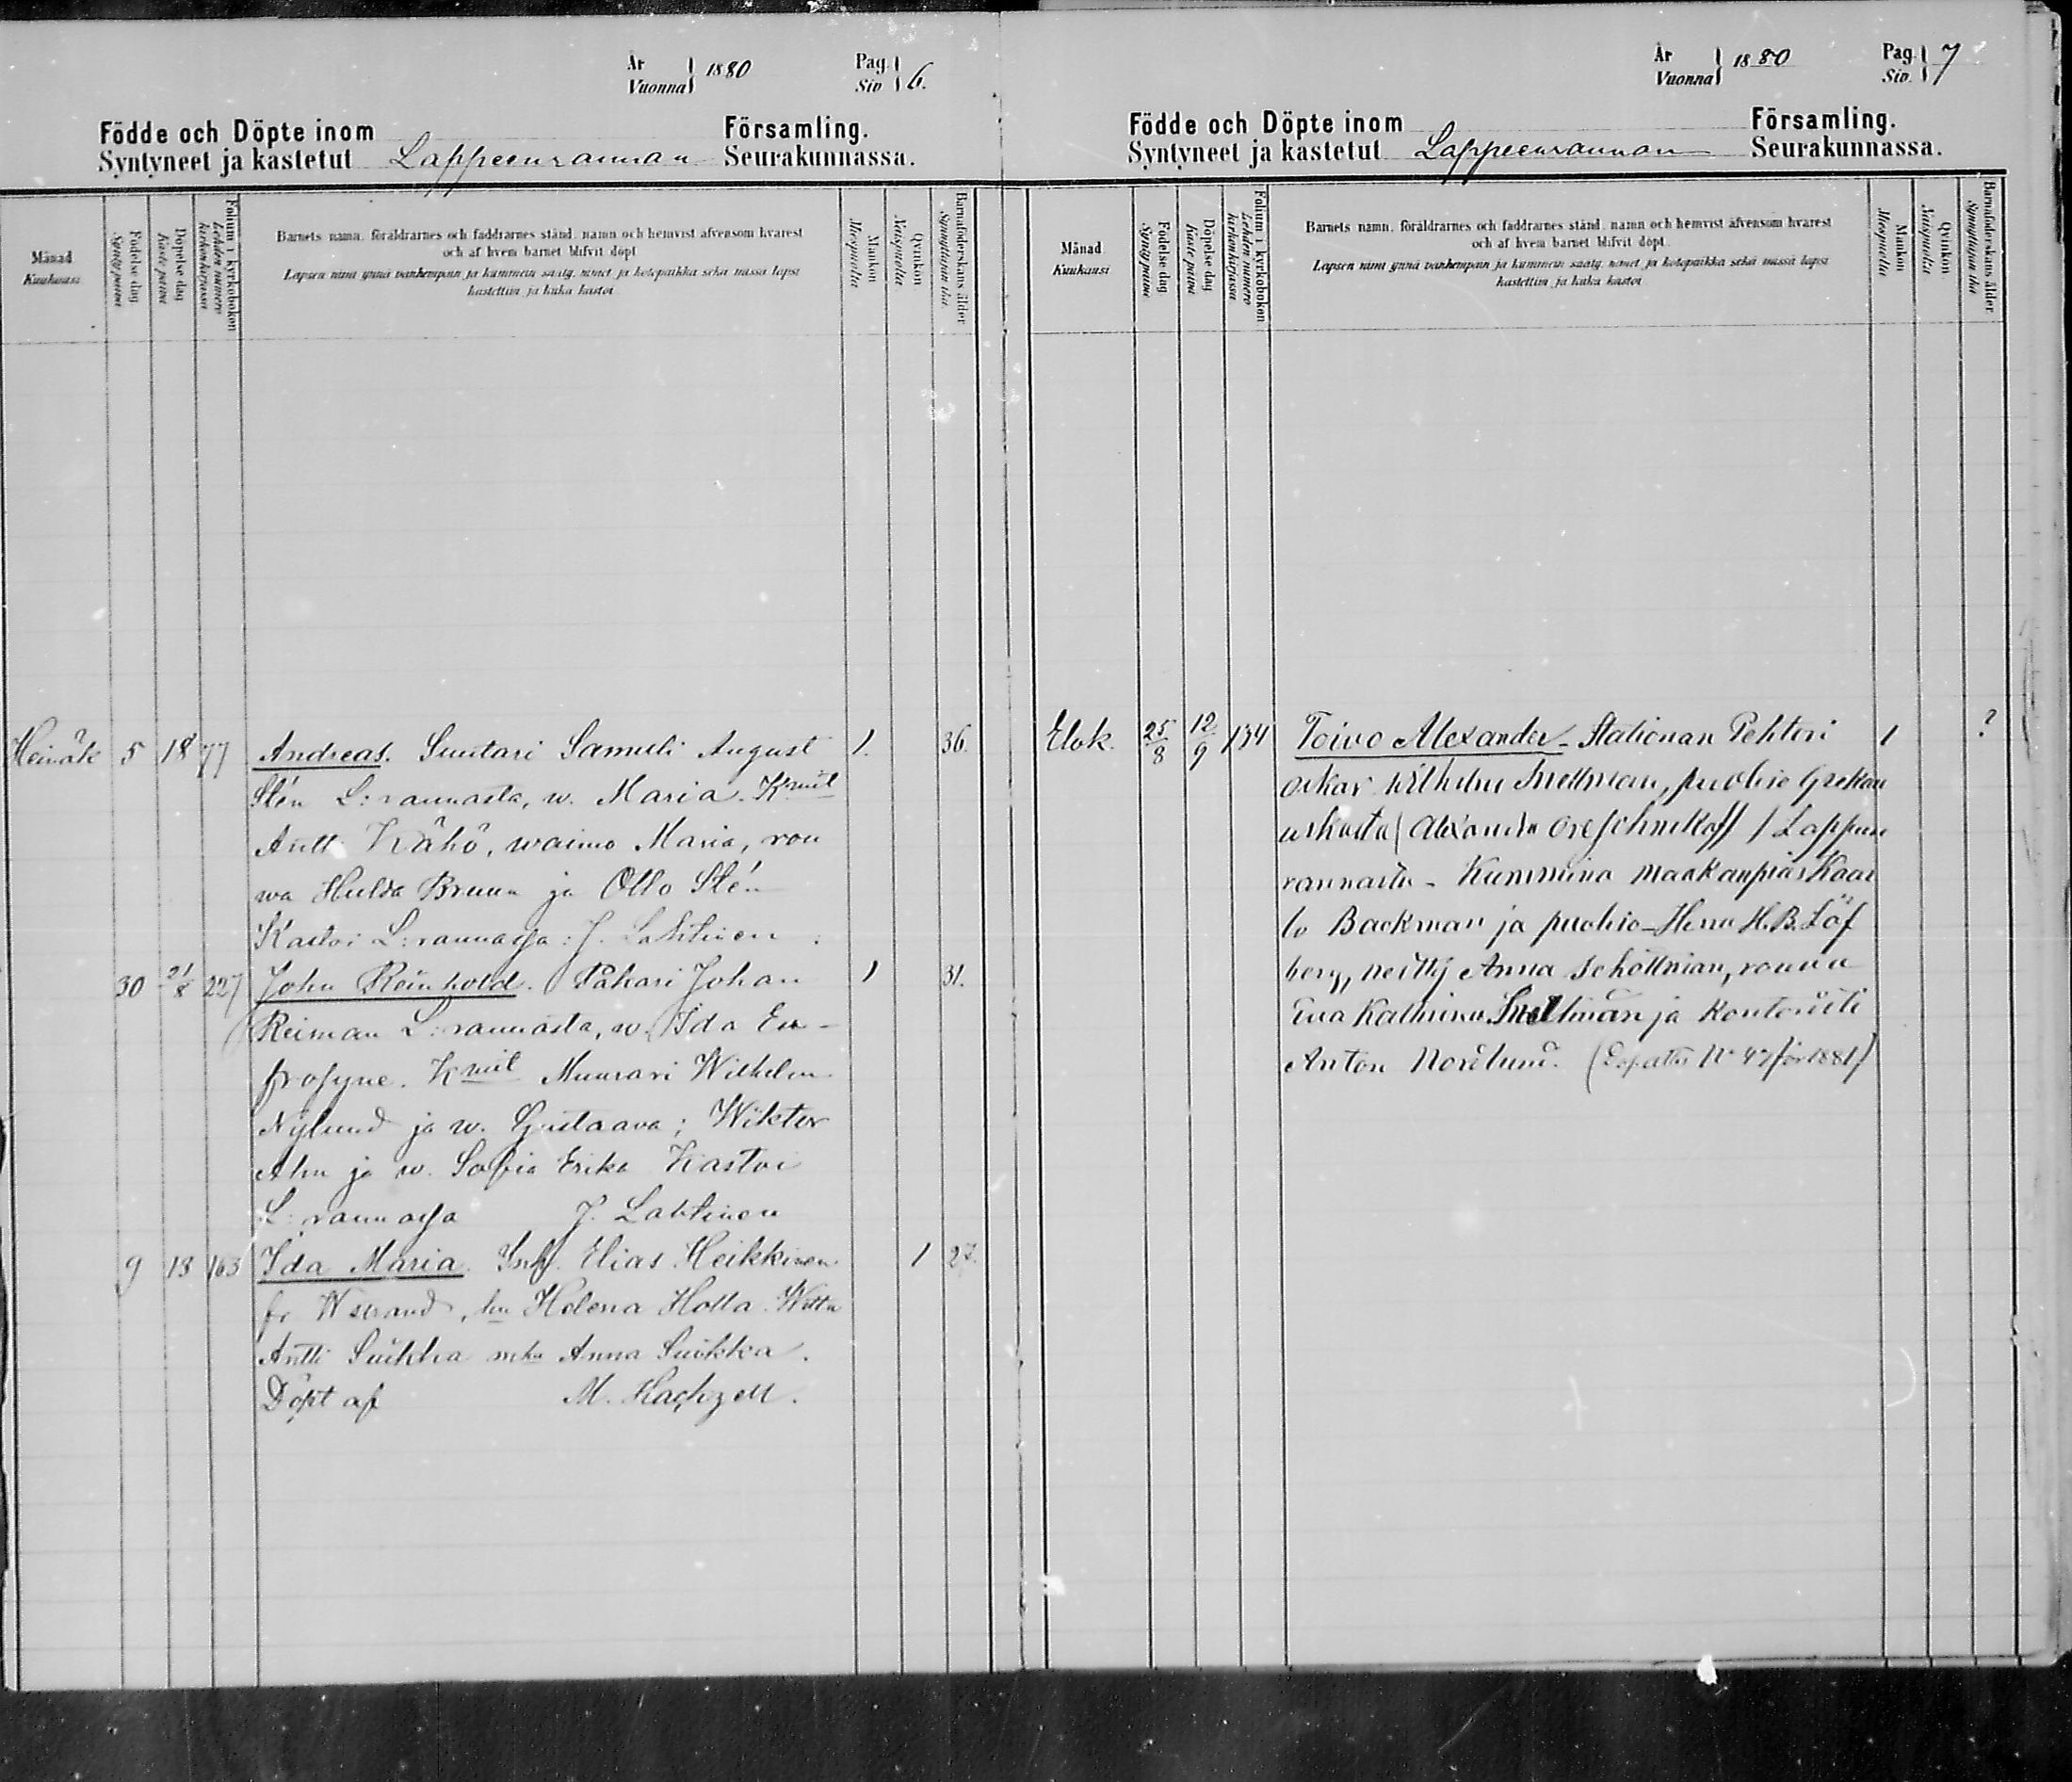 År
Vuonna 1880
Pag.
Siv 6.
Födde och Döpte inom Församling.
Syntyneet ja kastetut Lappeenrannan Seurakunnassa.
Månad
Kuukausi
Födelse dag
Synty päivä
Döpelse dag
Kaste päivä
Folium i kyrkoboken
Lehden numero
kirkonkirjassa
Barnets namn, föräldrarnes och faddrarnes stånd, namn och hemvist äfvensom hvarest
och af hvem barnet blifvit döpt
Lapsen nimi ynnä vanhempain ja kummein sääty, nimet ja kotopaikka sekä missä lapsi
kastettiin ja kuka kastoi
Mankön
Miespuolta
Qvinkön
Naispuolta
Barnaföderskans ålder
Synnyttäjän ikä
Heinäk 5 18 77 Andreas. Suutari Samuli August 1. 36.
Stén L:rannasta, w. Maria. Kmit
Antti Kähö, waimo Maria, rou
wa Hulda Bruun ja Otto Stén
Kastoi L:rannassa: J. Lahtinen.
30 21/8 227 John Reinhold. Påhari Johan 1 31.
Reiman L:rannasta, w. Ida Eu-
frosyne. Kmit Muurari Wilhelm
Nylund ja w. Gustaava; Wiktor
Alm ja w. Sofia Erika Kastoi
L:rannassa J. Lahtinen
9 13 163 Ida Maria. Inh. Elias Heikkinen 1 27.
fr Wstrand, hu Helena Holla. Wittn
Antti Suikka mka Anna Suikka.
Döpt af M. Hackzell.
År
Vuonna 1880
Pag.
Siv. 7
Födde och Döpte inom Församling.
Syntyneet ja kastetut Lappeenrannan Seurakunnassa.
Månad
Kuukausi
Födelse dag
Synty päivä
Döpelse dag
Kaste päivä
Folium i kyrkoboken
Lehden numero
kirkonkirjassa
Barnets namn, föräldrarnes och faddrarnes stånd, namn och hemvist äfvensom hvarest
och af hvem barnet blifvit döpt.
Lapsen nimi ynnä vanhempain ja kummein sääty, nimet ja kotopaikka sekä missä lapsi
kastettiin ja kuka kastoi
Mankön
Miespuolta
Qvinkön
Naispuolta
Barnaföderskans ålder.
Synnyttäjän ikä
Elok. 25/8 12/9 134 Toivo Alexander - Stationan Pehtori 1 ?
Oskar Wilhelm Snellman, puoliso Grekan
uskosta (Alexandra Oreschnikoff / Lappen
rannasta - Kummina Maakauppias Kaar
lo Backman ja puoliso - Herra H.B. Löf
berg, neitty Anna Schöllman, rouva
Eva Kathrina Snellman ja Kontoristi
Anton Nordlund. (Dopattest Nr 47 för 1881)